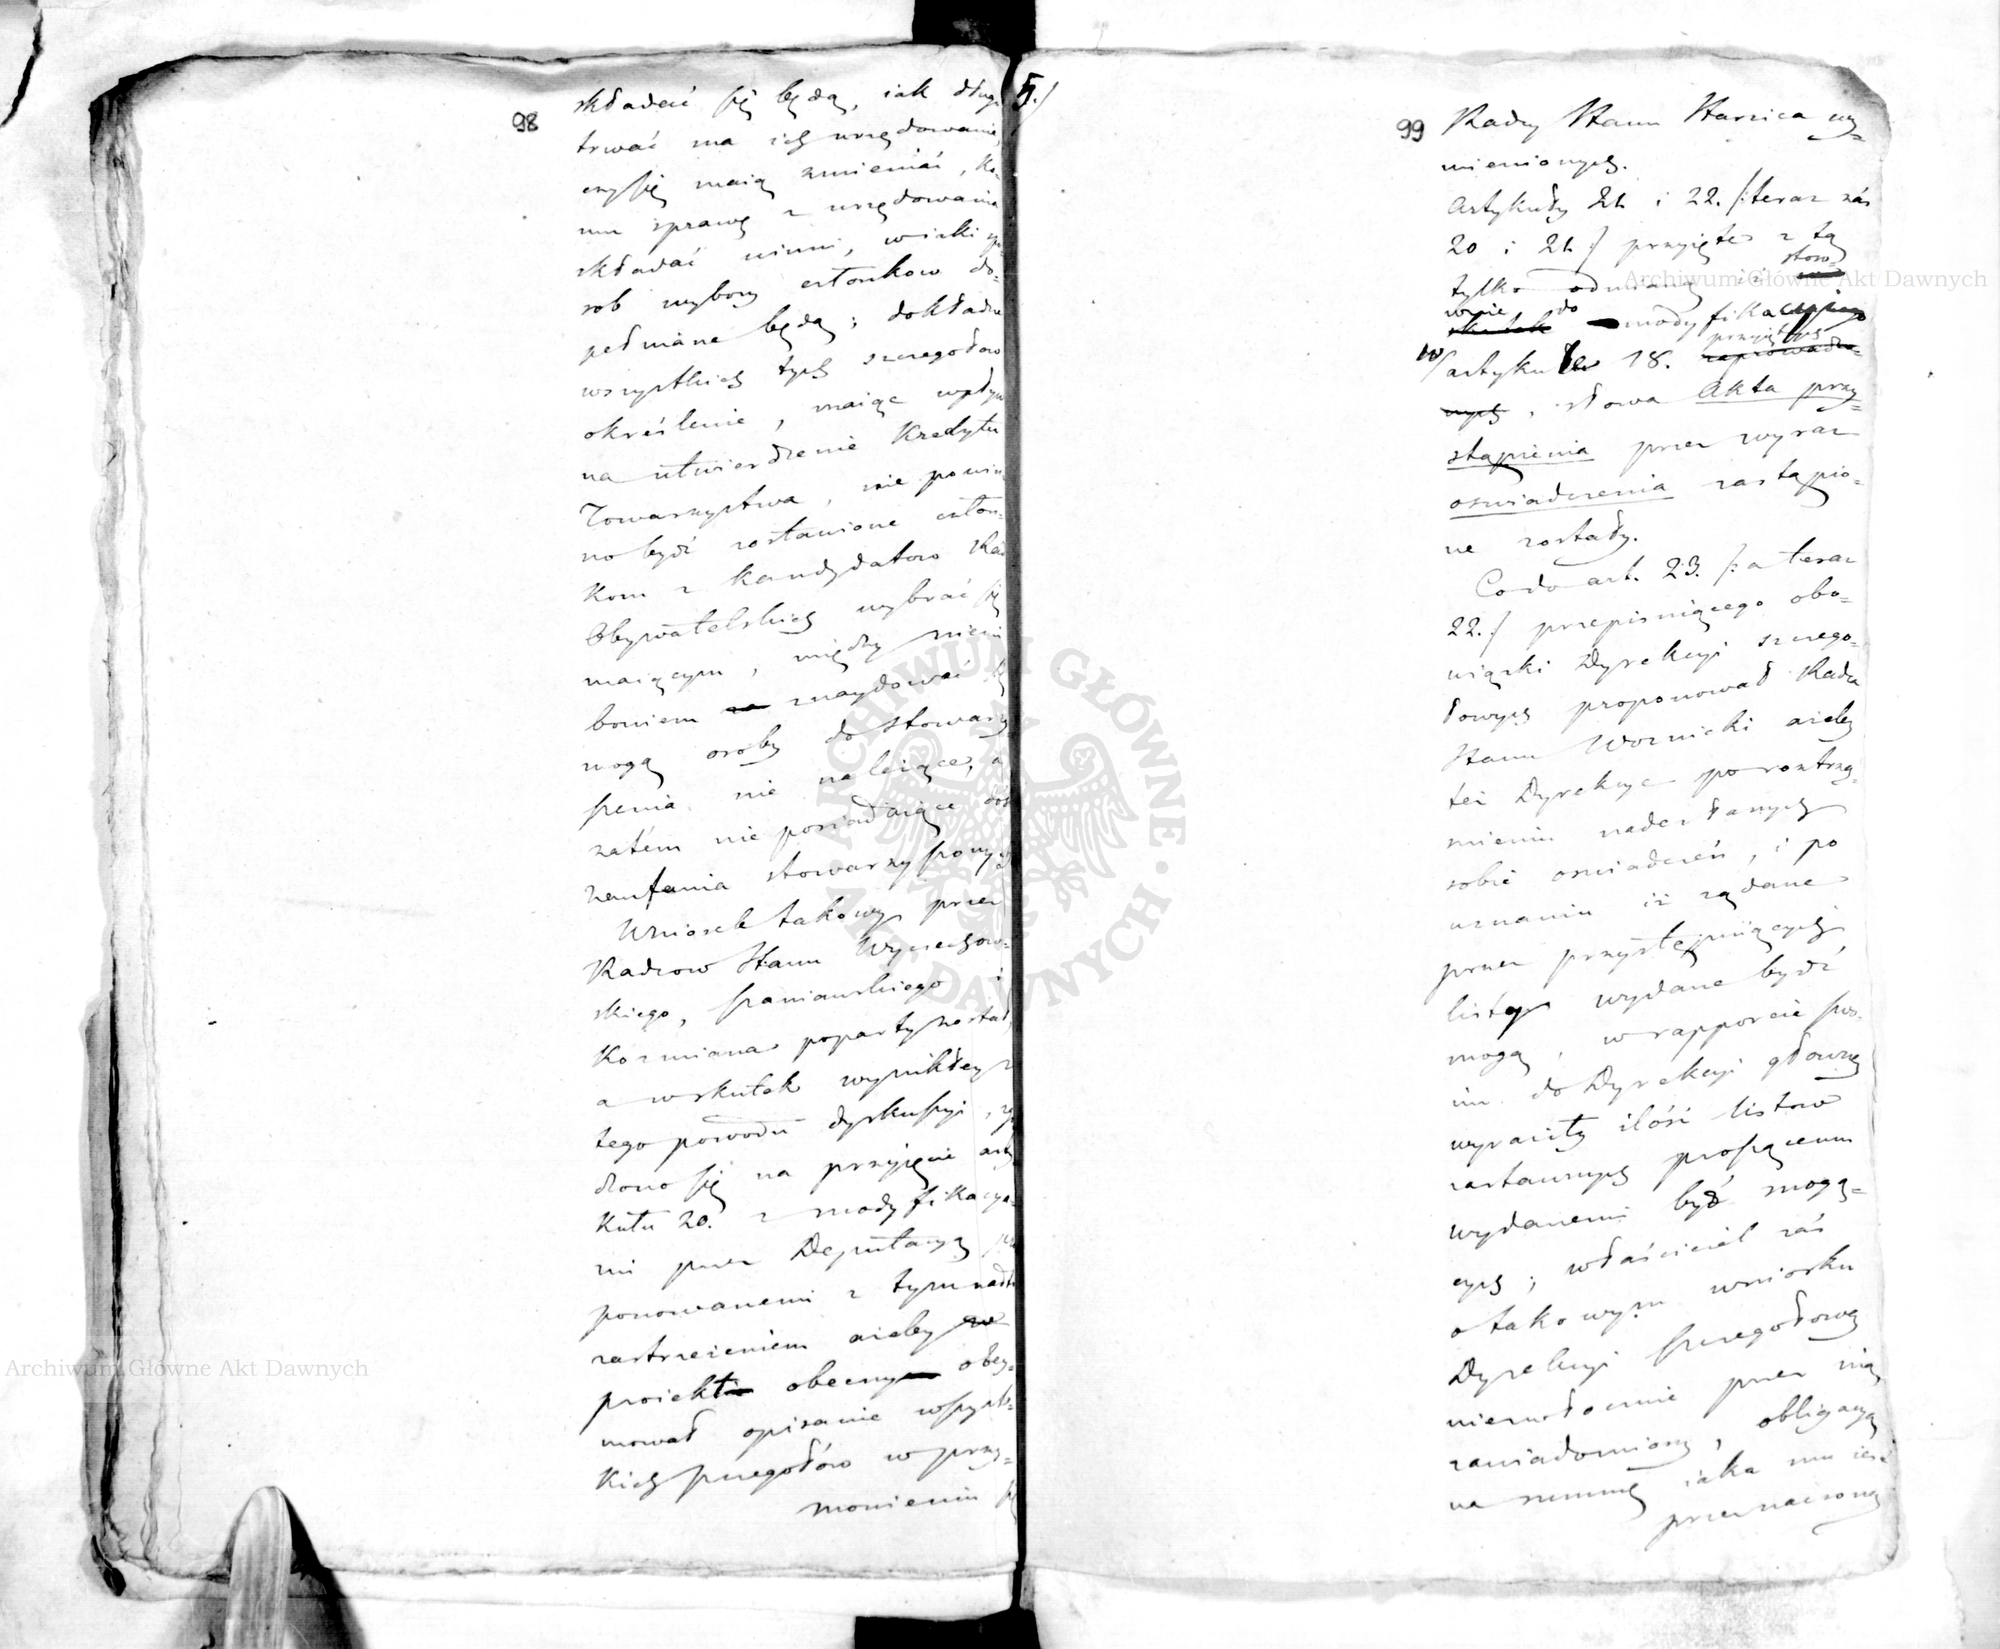 98
składać się będą, iak długo
trwać ma ich urzędowanie,
czy się maią zmieniać, ko-
mu sprawę z urzędowania
składać winni, w iaki spo-
sob wybory członkow do-
pełniane będą; dokładne
wszystkich tych szczegołow
określenie, maiąc wpływ
na utwierdzenie Kredytu
Towarzystwa, nie powin-
no bydź zostawione człon-
kom z Kandydatow Rad
Obywatelskich wybrać się
maiącym, między niemi
bowiem znaydować się
mogą osoby do Stowarzy-
szenia nie należące, a
zatém nie posiadaiące dość
zaufania stowarzyszonych
Wniosek takowy przez
Radzcow Stanu Wyczechow-
skiego, Szaniawskiego i
Kozmiana poparty został,
a w skutek wynikłey z
tego powodu dyskussyi, zgo
dzono się na przyjęcie arty
kułu 20. z modyfikacya-
mi przez Deputacyą pro
ponowanemi z tym nadto
zastrzeżeniem ażeby
proiekt obecny obey-
mował opisanie wszyst-
kich szczegołów w przy-
mowieniu się
5./
99
Radcy Stanu Starzica wy-
mienionych.
Artykuły 21 i 22. /:teraz zaś
20 i 21:/ przyięte z tą
tylko odmianą iż stoso-
wnie do modyfikacyi
w/ artykule 18. przyiętych
, słowa Akta przy-
stąpienia przez wyraz
oswiadczenia zastąpio-
ne zostały.
Co do art. 23. /: a teraz
22:/ przepisuiącego obo-
wiązki Dyrekcyi szczego-
łowych proponował Radca
Stanu Woznicki ażeby
też Dyrekcye po roztrzą-
snieniu nadesłanych
sobie oswiadczeń, i po
uznaniu iż żądane
przez przystępuiących
listy wydane bydź
mogą, w rapporcie swo-
im do Dyrekcyi główney
wyraziły ilość listow
zastawnych proszącemu
wydanemi być mogą-
cych; właściciel zaś
o takowym wniosku
Dyrekcyi szczegołowey
niezwłocznie przez nią
zawiadomiony, obligacyą
na summę iaka mu iest
przeznaczoną